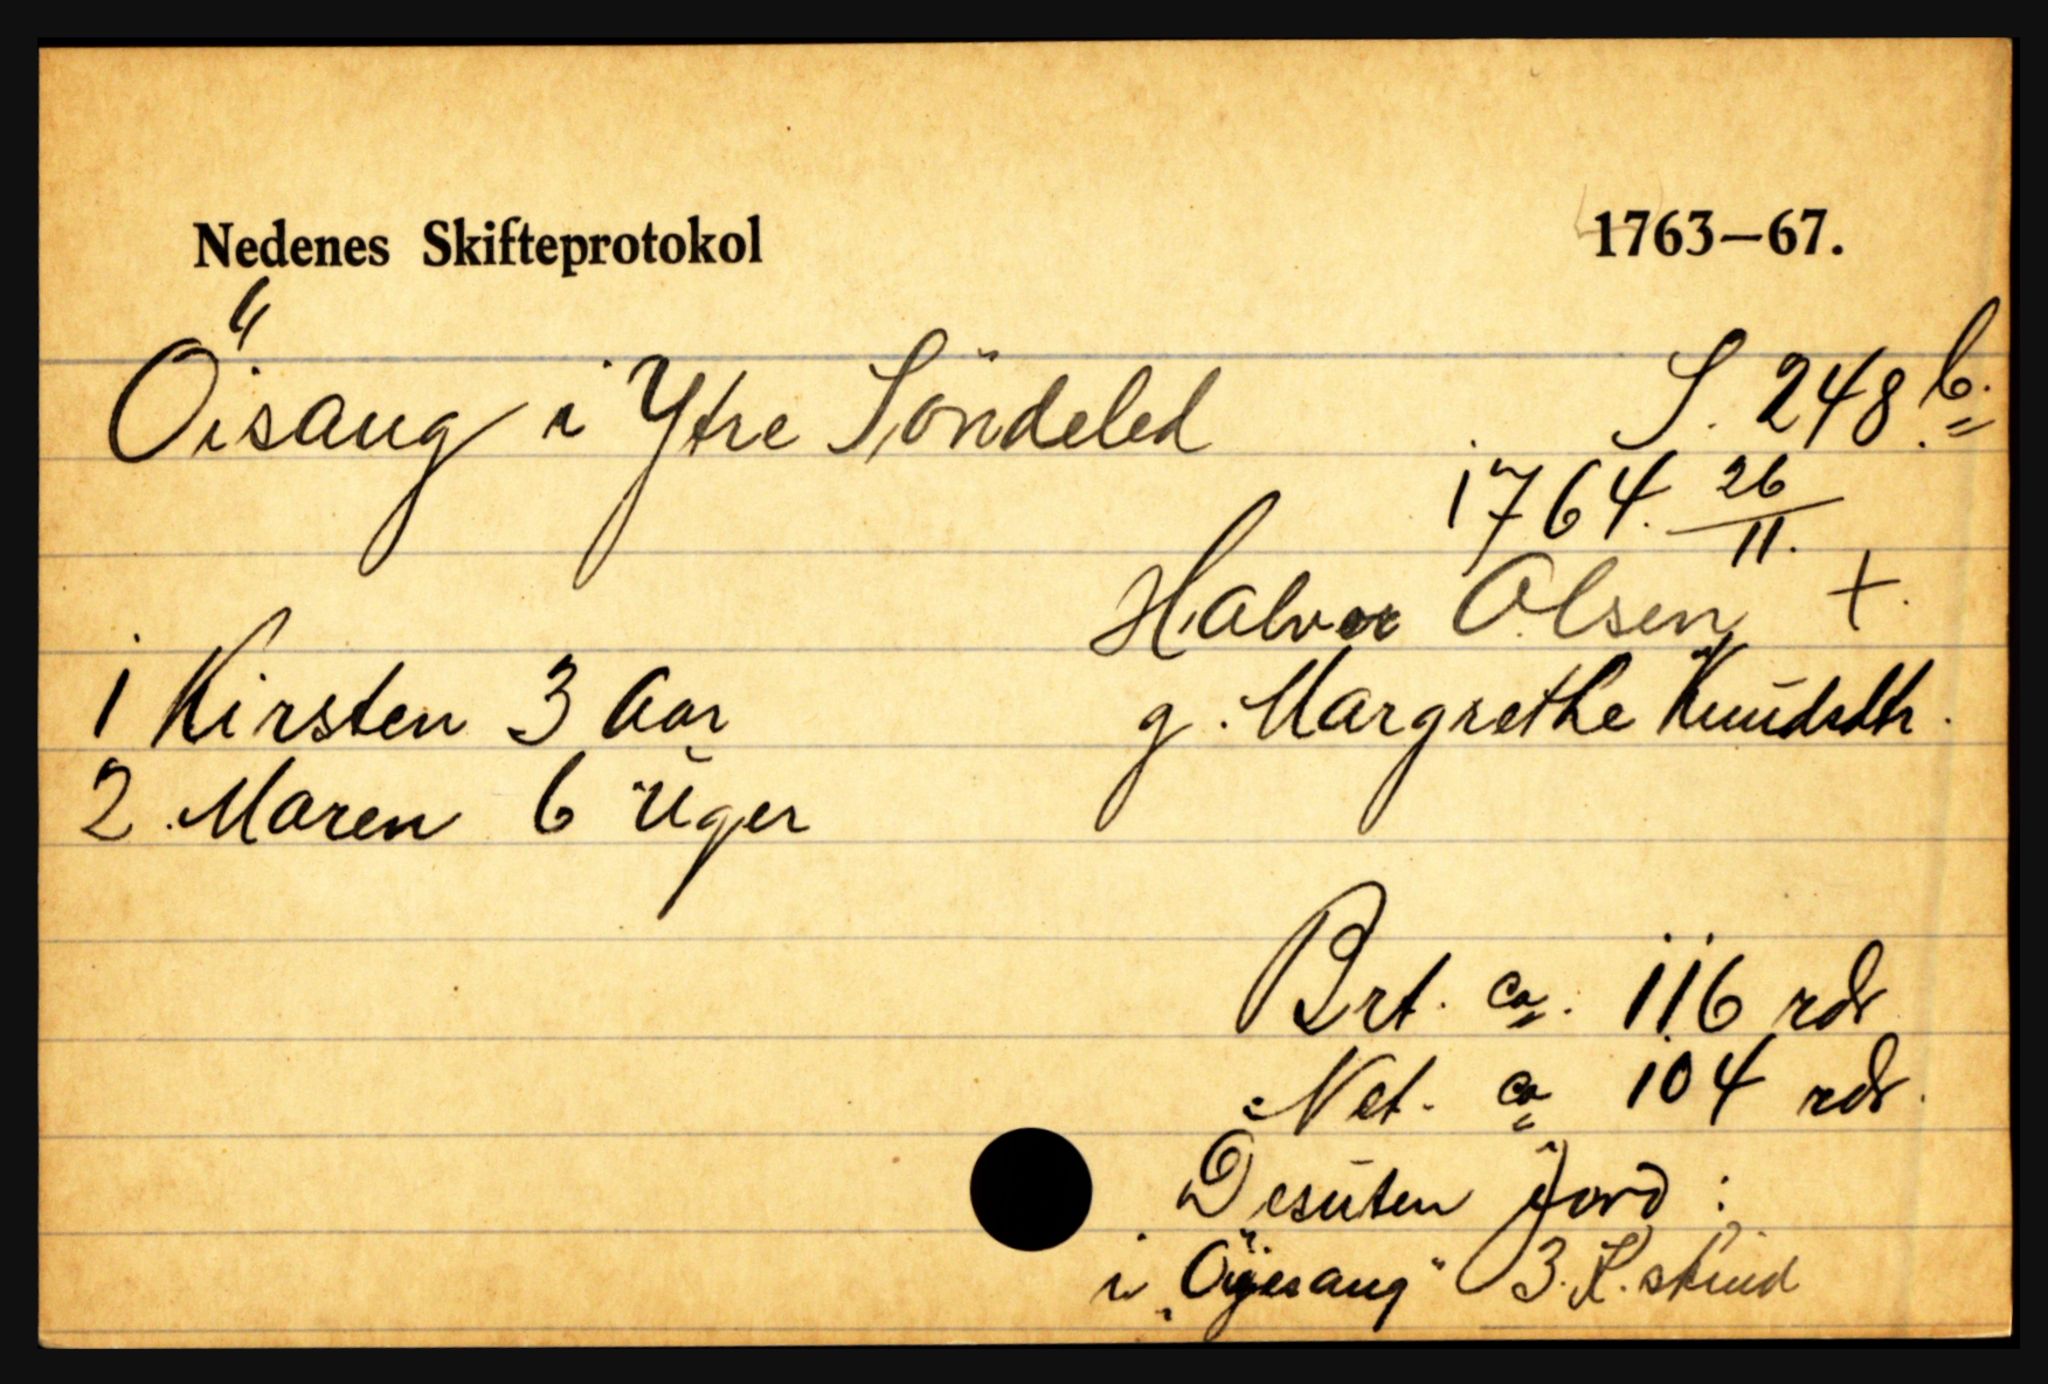 Nedenes Skifteprotokol 1763—67.
Öisang i Ytre Söndeled S. 248 b.
1764. 26/11.
Halvor Olsen +.
1 Kirsten 3 Aar g. Margrethe Knudsdtr.
2. Maren 6 Uger
Brt. ca. 116 rdr
Net. ca 104 rdr.
Desuten Jord:
i „Öijesang" 3. K. skind